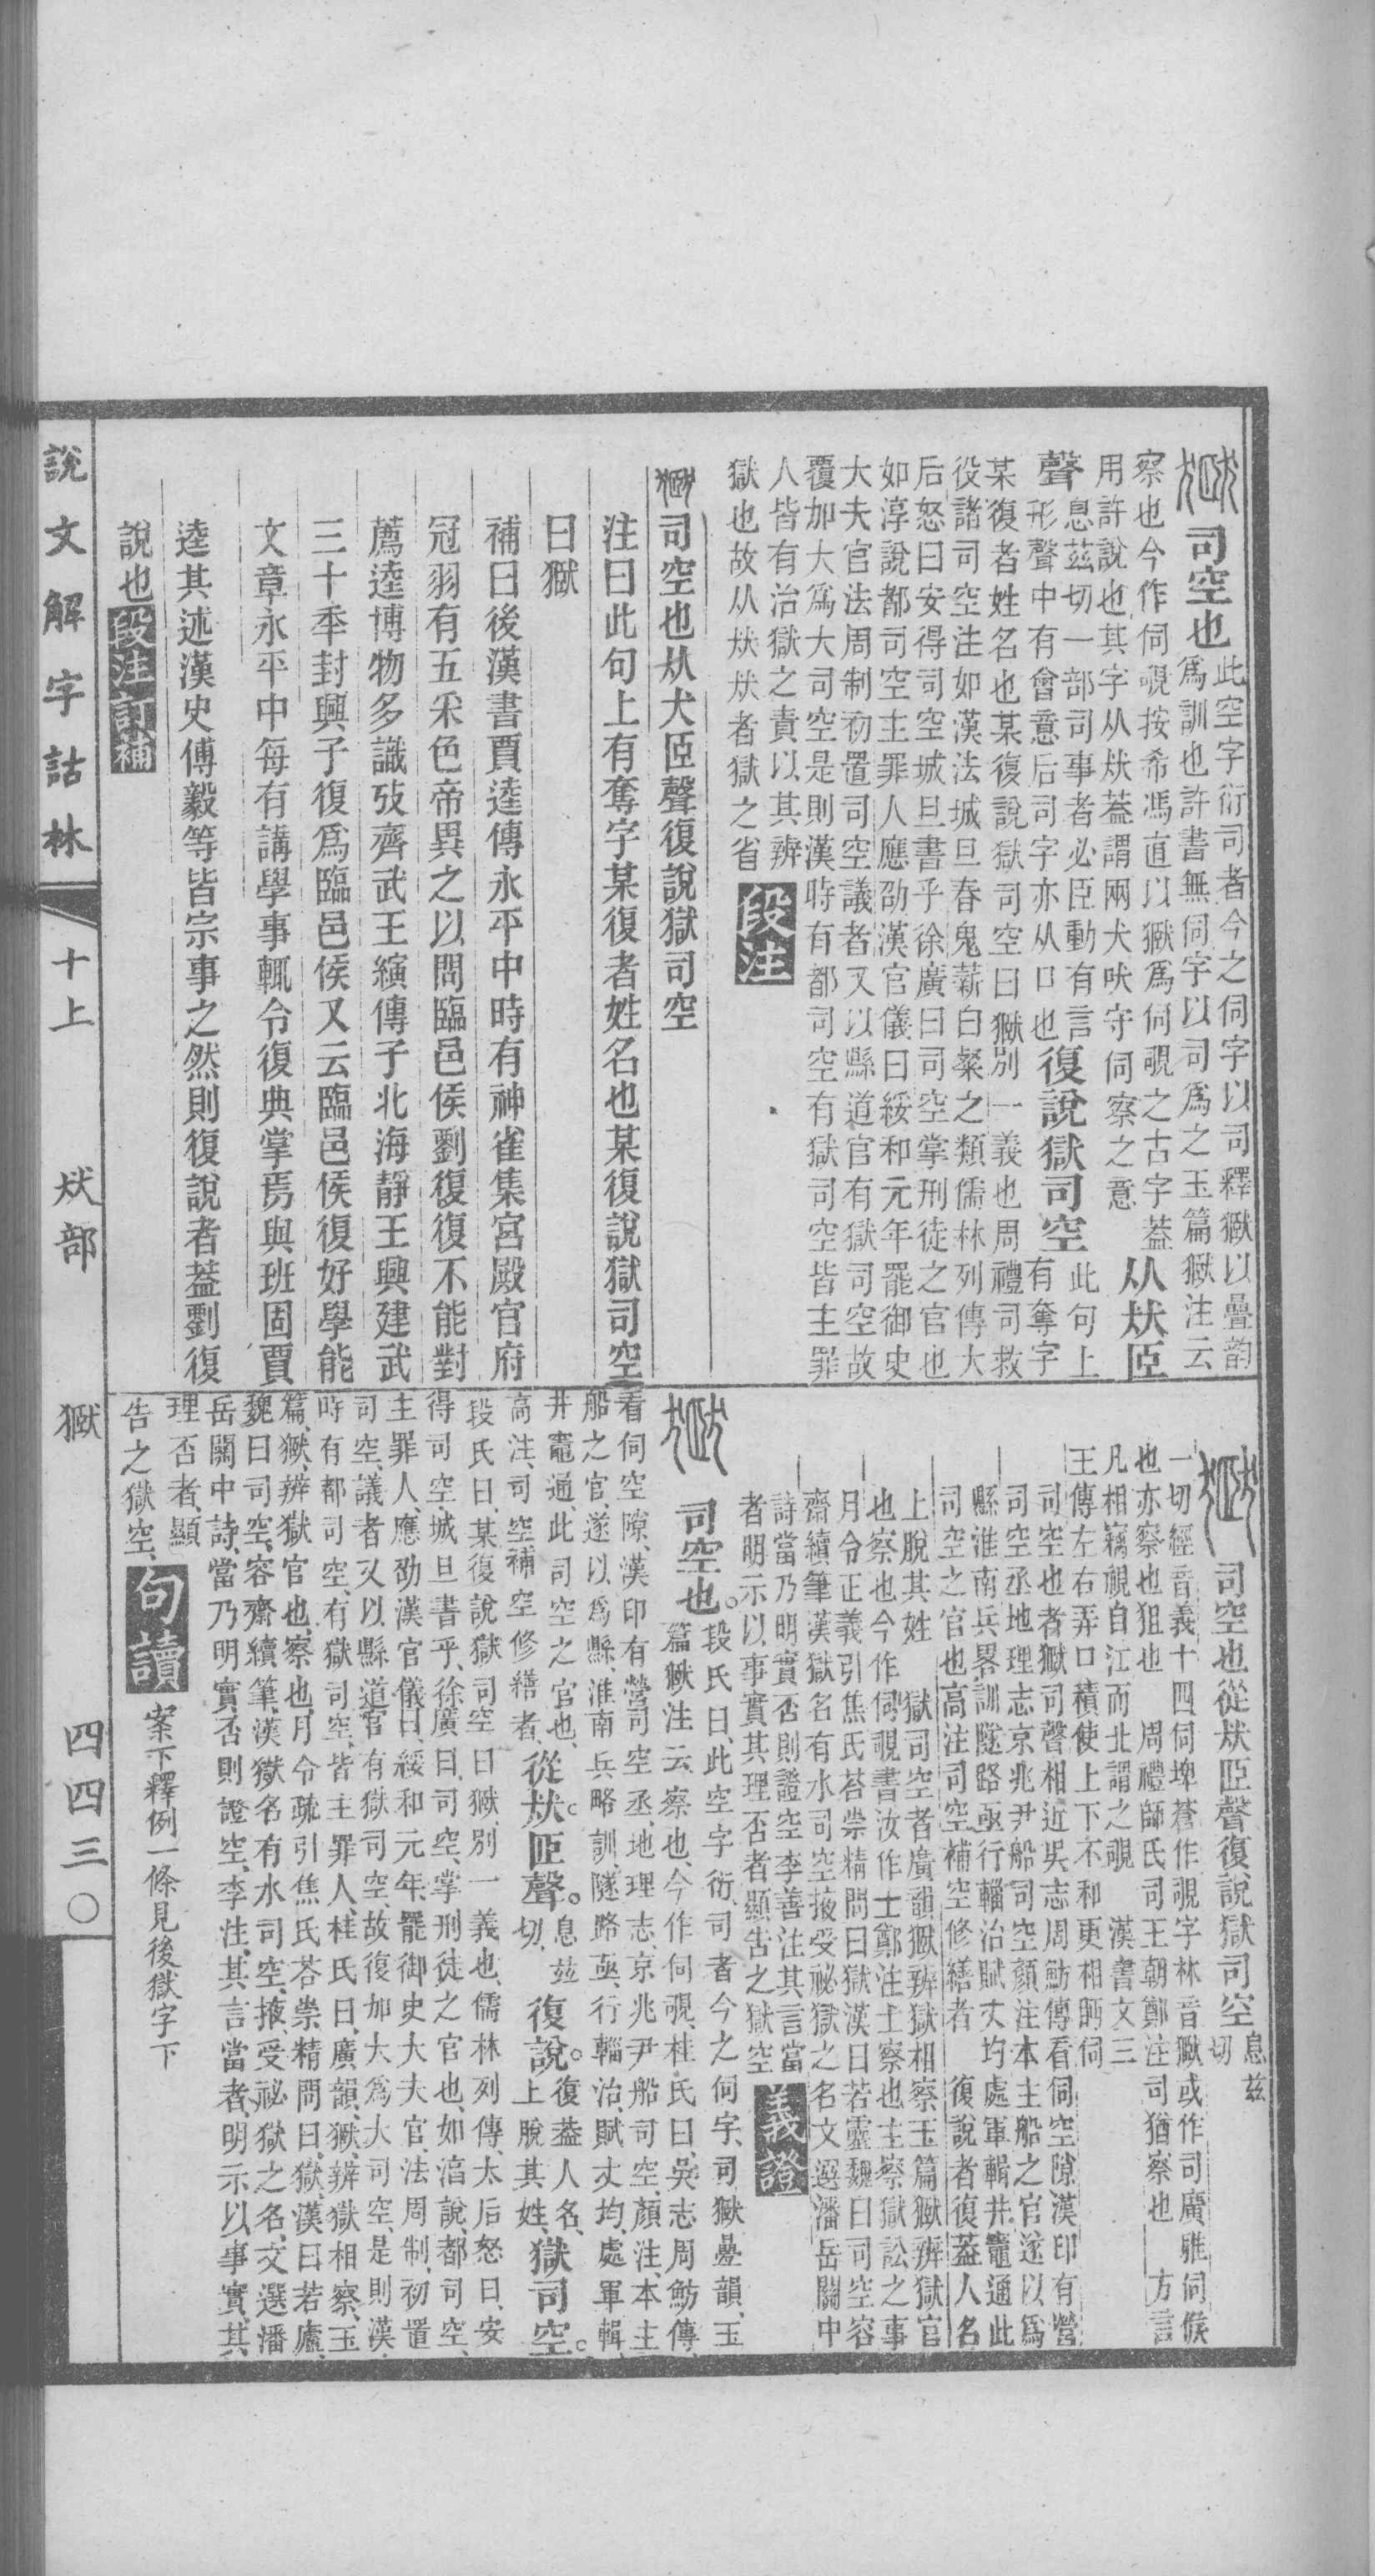 司空也此空字衍司者今之伺字以司釋㹜以疊韵
爲訓也許書無伺字以司爲之玉篇㹜注云
察也今作伺覗按希馮直以㹜爲伺覗之古字葢
用許說也其字从㹜葢謂兩犬吠守伺察之意从㹜𦣞
聲息茲切一部司事者必𦣞動有言
形聲中有會意后司字亦从口也復說獄司空此句上
有奪字
某復者姓名也某復說獄司空曰㹜別一義也周禮司救
役諸司空注如漢法城旦舂鬼薪白粲之類儒林列傳大
后怒曰安得司空城旦書乎徐廣曰司空掌刑徒之官也
如淳說都司空主罪人應劭漢官儀曰綏和元年罷御史
大夫官法周制初置司空議者又以縣道官有獄司空故
覆加大爲大司空是則漢時有都司空有獄司空皆主罪
人皆有治獄之責以其辨
獄也故从㹜㹜者獄之省段注
司空也从犬𦣞聲復說獄司空
注曰此句上有奪字某復者姓名也某復說獄司空
曰㹜
補曰後漢書賈逵傳永平中時有神雀集宮殿官府
冠羽有五采色帝異之以問臨邑侯劉復復不能對
薦逵博物多識攷齊武王縯傳子北海靜王興建武
三十秊封興子復爲臨邑侯又云臨邑侯復好學能
文章永平中每有講學事輒令復典掌焉與班固賈
逵其述漢史傅毅等皆宗事之然則復說者葢劉復
說也段注訂補
司空也從㹜𦣞聲復說獄司空息茲切
一切經音義十四伺埤蒼作覗字林音㹜或作司廣雅伺候
也亦察也狙也 周禮師氏司王朝鄭注司猶察也 方言
凡相竊視自江而北謂之覗 漢書文三
王傳左右弄口積使上下不和更相眄伺
司空也者㹜司聲相近吳志周魴傳看伺空隙漢印有營
司空丞地理志京兆尹船司空顏注本主船之官遂以爲
縣淮南兵畧訓隧路亟行輜治賦丈均處軍輯井竈通此
司空之官也高注司空補空修繕者 復說者復葢人名
上脫其姓 獄司空者廣韻㹜辨獄相察玉篇㹜辨獄官
也察也今作伺覗書汝作士鄭注士察也主察獄訟之事
月令正義引焦氏荅崇精問曰獄漢曰若靈魏曰司空容
齋續筆漢獄名有水司空掖受祕獄之名文選潘岳關中
詩當乃明實否則證空李善注其言當
者明示以事實其理否者顯告之獄空義證
司空也。段氏曰、此空字衍、司者今之伺字、司㹜疊韻、玉
篇㹜注云、察也、今作伺覗、桂氏曰、吳志周魴傳、
看伺空隙、漢印有營司空丞、地理志、京兆尹船司空、顏注、本主
船之官、遂以爲縣、淮南兵略訓、隧路亟、行輜治、賦丈均、處軍輯、
井竈通、此司空之官也、
高注、司空補空修繕者、從㹜。𦣞聲。息茲切、復說。復葢人名、上脫其姓、獄司空。
段氏曰、某復說獄司空曰㹜、別一義也、儒林列傳、太后怒曰、安
得司空城旦書乎、徐廣曰、司空、掌刑徒之官也、如淳說、都司空、
主罪人、應劭漢官儀曰、綏和元年、罷御史大夫官、法周制、初置
司空、議者又以縣道官有獄司空、故復加大爲大司空、是則漢
時有都司空、有獄司空、皆主罪人、桂氏曰、廣韻、㹜、辨獄相察、玉
篇、㹜、辨獄官也、察也、月令疏引焦氏荅崇精問曰、獄、漢曰若盧、
魏曰司空、容齋續筆、漢獄名有水司空、掖、受祕獄之名、文選潘
岳關中詩、當乃明實、否則證空、李注、其言當者、明示以事實、其
理否者、顯
告之獄空、句讀 案下釋例一條見後獄字下
說文解字詁林 十上 㹜部 㹜 四四三〇